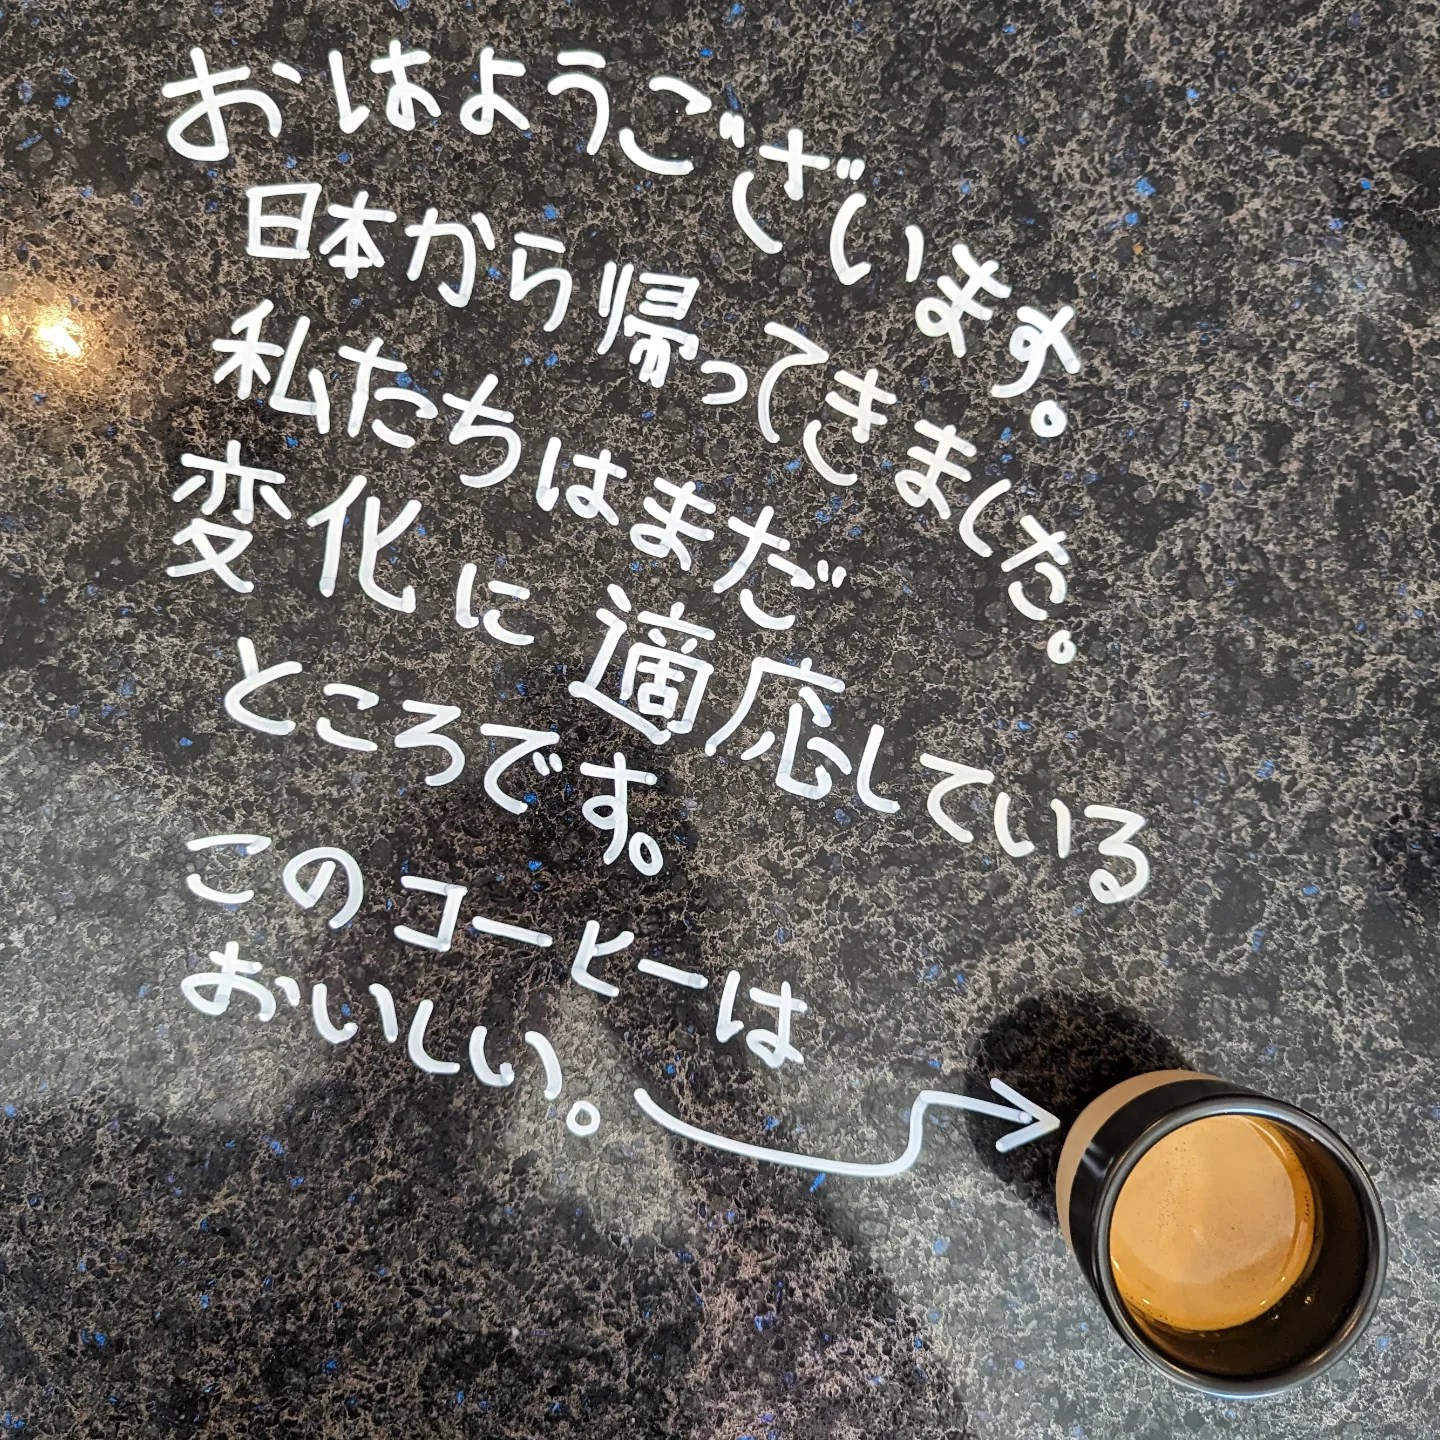 おはようございます。
日本から帰ってきました。
私たちはまだ
変化に適応している
ところです。
このコーヒーは
おいしい。